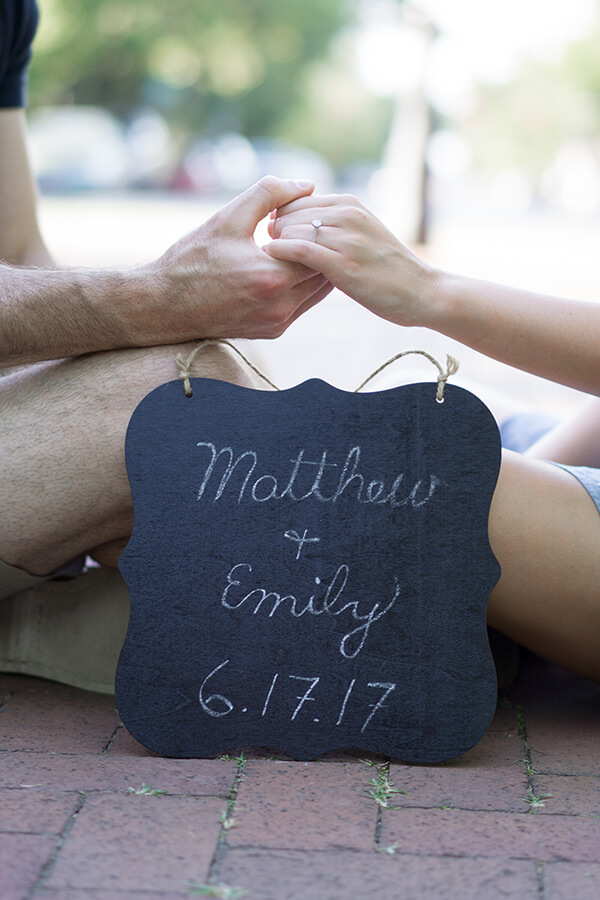 Matthew
+
Emily
6.17.17